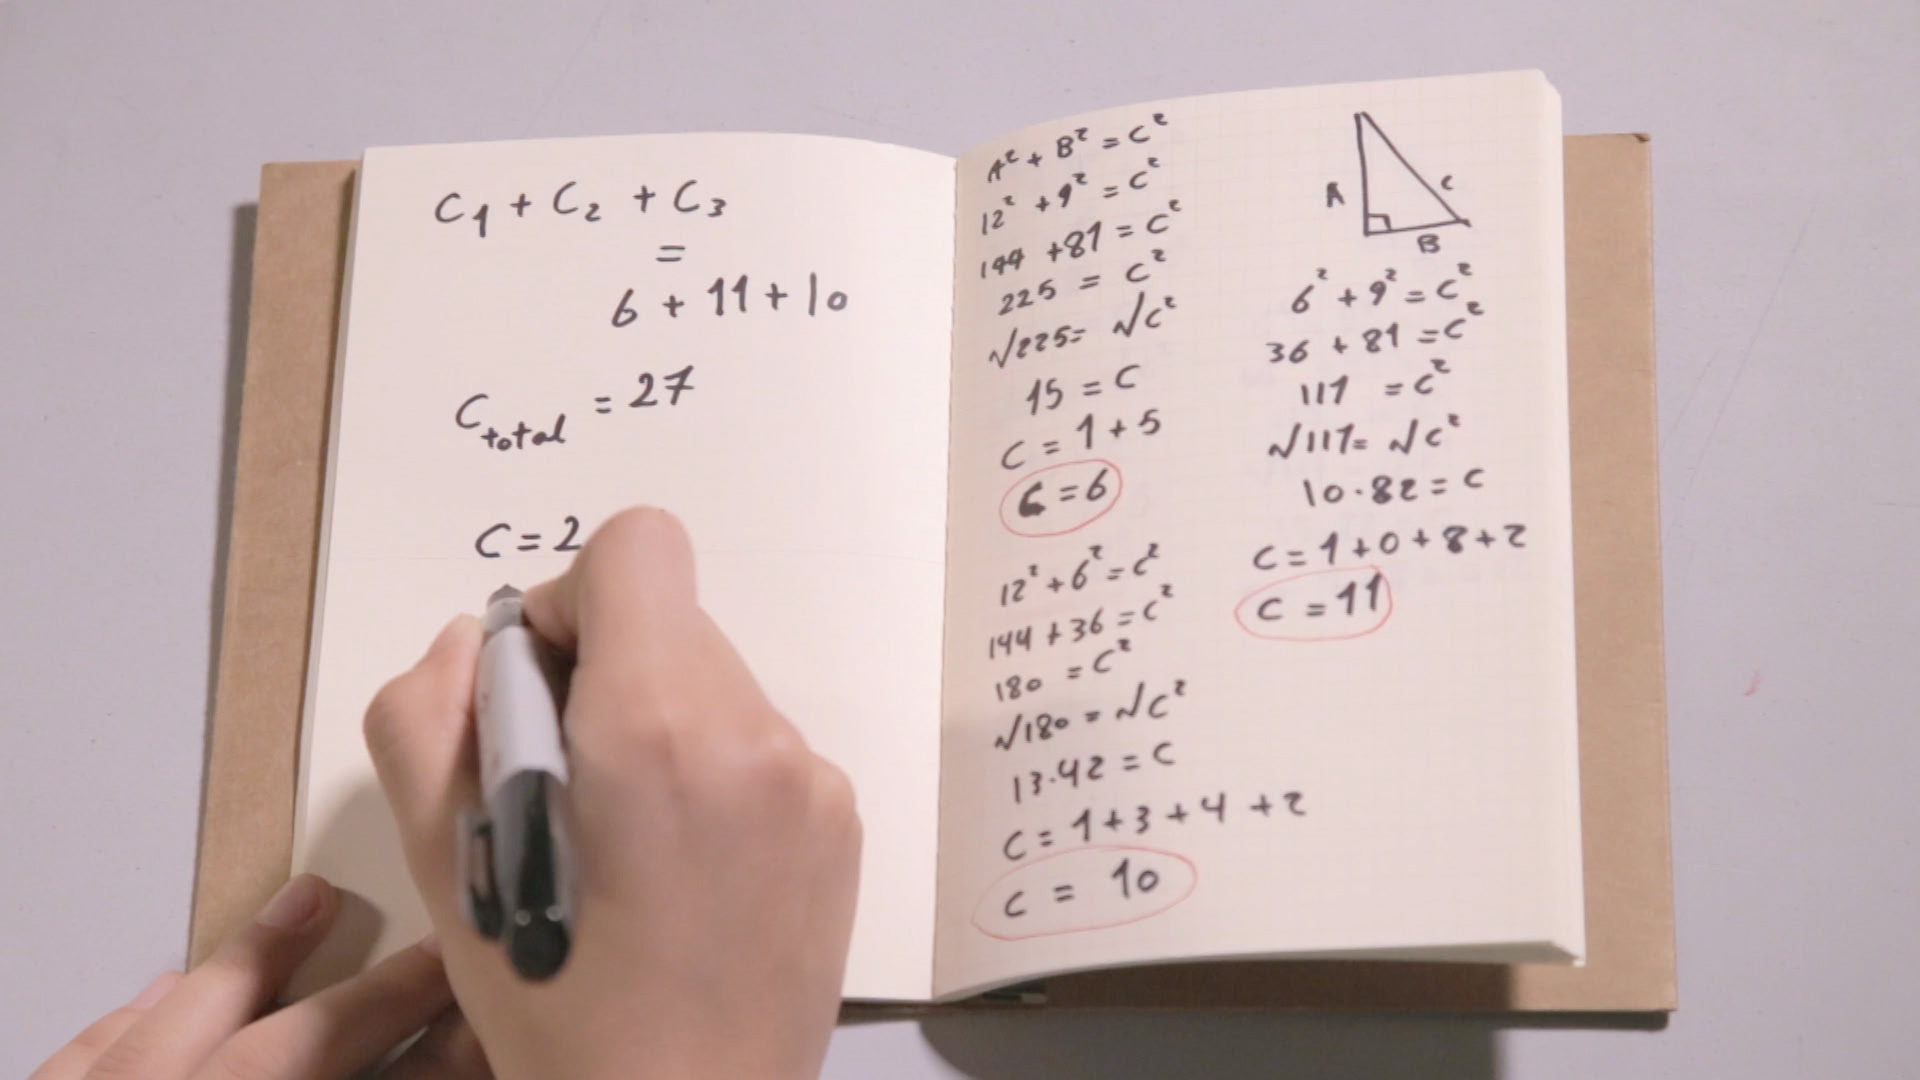 C₁ + C₂ + C₃
=
6 + 11 + 10
Ctotal = 27
C = 2
A² + B² = C²
12² + 9² = C²
144 + 81 = C²
225 = C²
√225 = √C²
15 = C
C = 1 + 5
C = 6
12² + 6² = C²
144 + 36 = C²
180 = C²
√180 = √C²
13.42 = C
C = 1 + 3 + 4 + 2
C = 10
A
C
B
6² + 9² = C²
36 + 81 = C²
117 = C²
√117 = √C²
10.82 = C
C = 1 + 0 + 8 + 2
C = 11